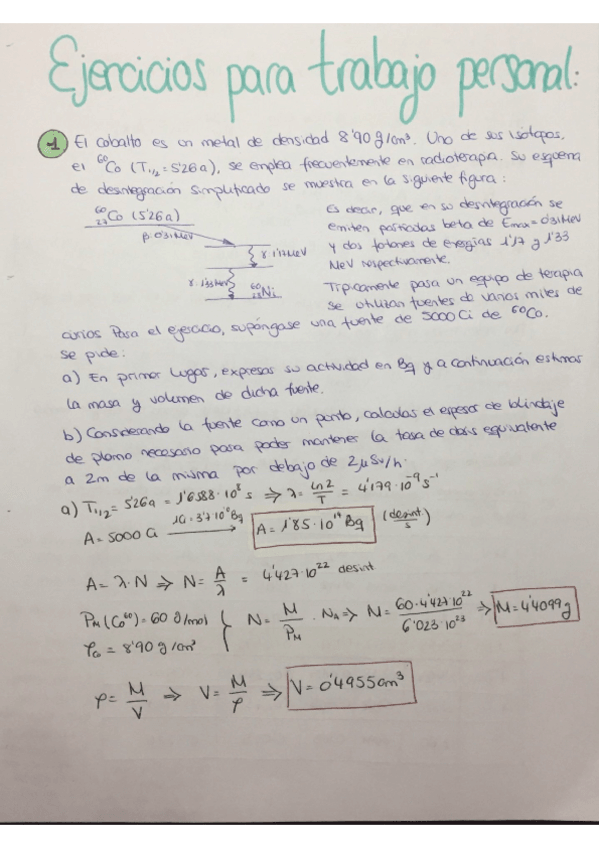 Ejercicios para trabajo personal:
1 El cobalto es un metal de densidad 8'90 g/cm³. Uno de sus isótopos,
el ⁶⁰Co (T₁/₂ = 5'26a), se emplea frecuentemente en radioterapia. Su esquema
de desintegración simplificado se muestra en la siguiente figura:
⁶⁰₂₇Co (5'26a)
β: 0'31 MeV
γ: 1'17 MeV
γ: 1'33 MeV
⁶⁰₂₈Ni
Es decir, que en su desintegración se
emiten partículas beta de Emax = 0'31 MeV
y dos fotones de energías 1'17 y 1'33
MeV respectivamente.
Típicamente para un equipo de terapia
se utilizan fuentes de varios miles de
curios. Para el ejercicio, supóngase una fuente de 5000 Ci de ⁶⁰Co.
Se pide:
a) En primer lugar, expresar su actividad en Bq y a continuación estimar
la masa y volumen de dicha fuente.
b) Considerando la fuente como un punto, calcular el espesor de blindaje
de plomo necesario para poder mantener la tasa de dosis equivalente
a 2m de la misma por debajo de 2 μSv/h.
a) T₁/₂ = 5'26a = 1'6588·10⁸ s ⇒ λ = Ln 2 / T = 4'179·10⁻⁹ s⁻¹
A = 5000 Ci 1Ci = 3'7·10¹⁰ Bq → A = 1'85·10¹⁴ Bq (desint./s)
A = λ·N ⇒ N = A/λ = 4'427·10²² desint
PM (Co⁶⁰) = 60 g/mol
ρCo = 8'90 g/cm³
N = M/PM · NA ⇒ M = 60·4'427·10²² / 6'023·10²³ ⇒ M = 4'4099 g
ρ = M/V ⇒ V = M/ρ ⇒ V = 0'4955 cm³